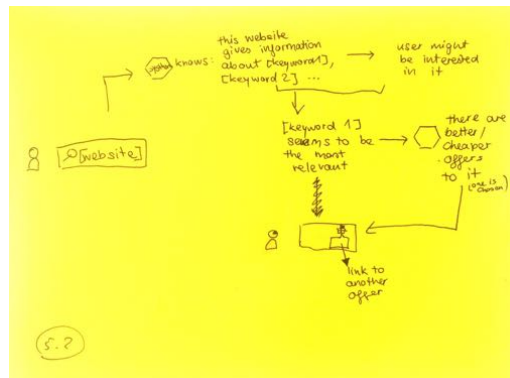 knows:
this website
gives information
about [keyword1],
[keyword 2] ...
user might
be interested
in it
[website]
[keyword 1]
seems to be
the most
relevant
there are
better/
cheaper
offers
to it
(one is
chosen)
link to
another
offer
5.2